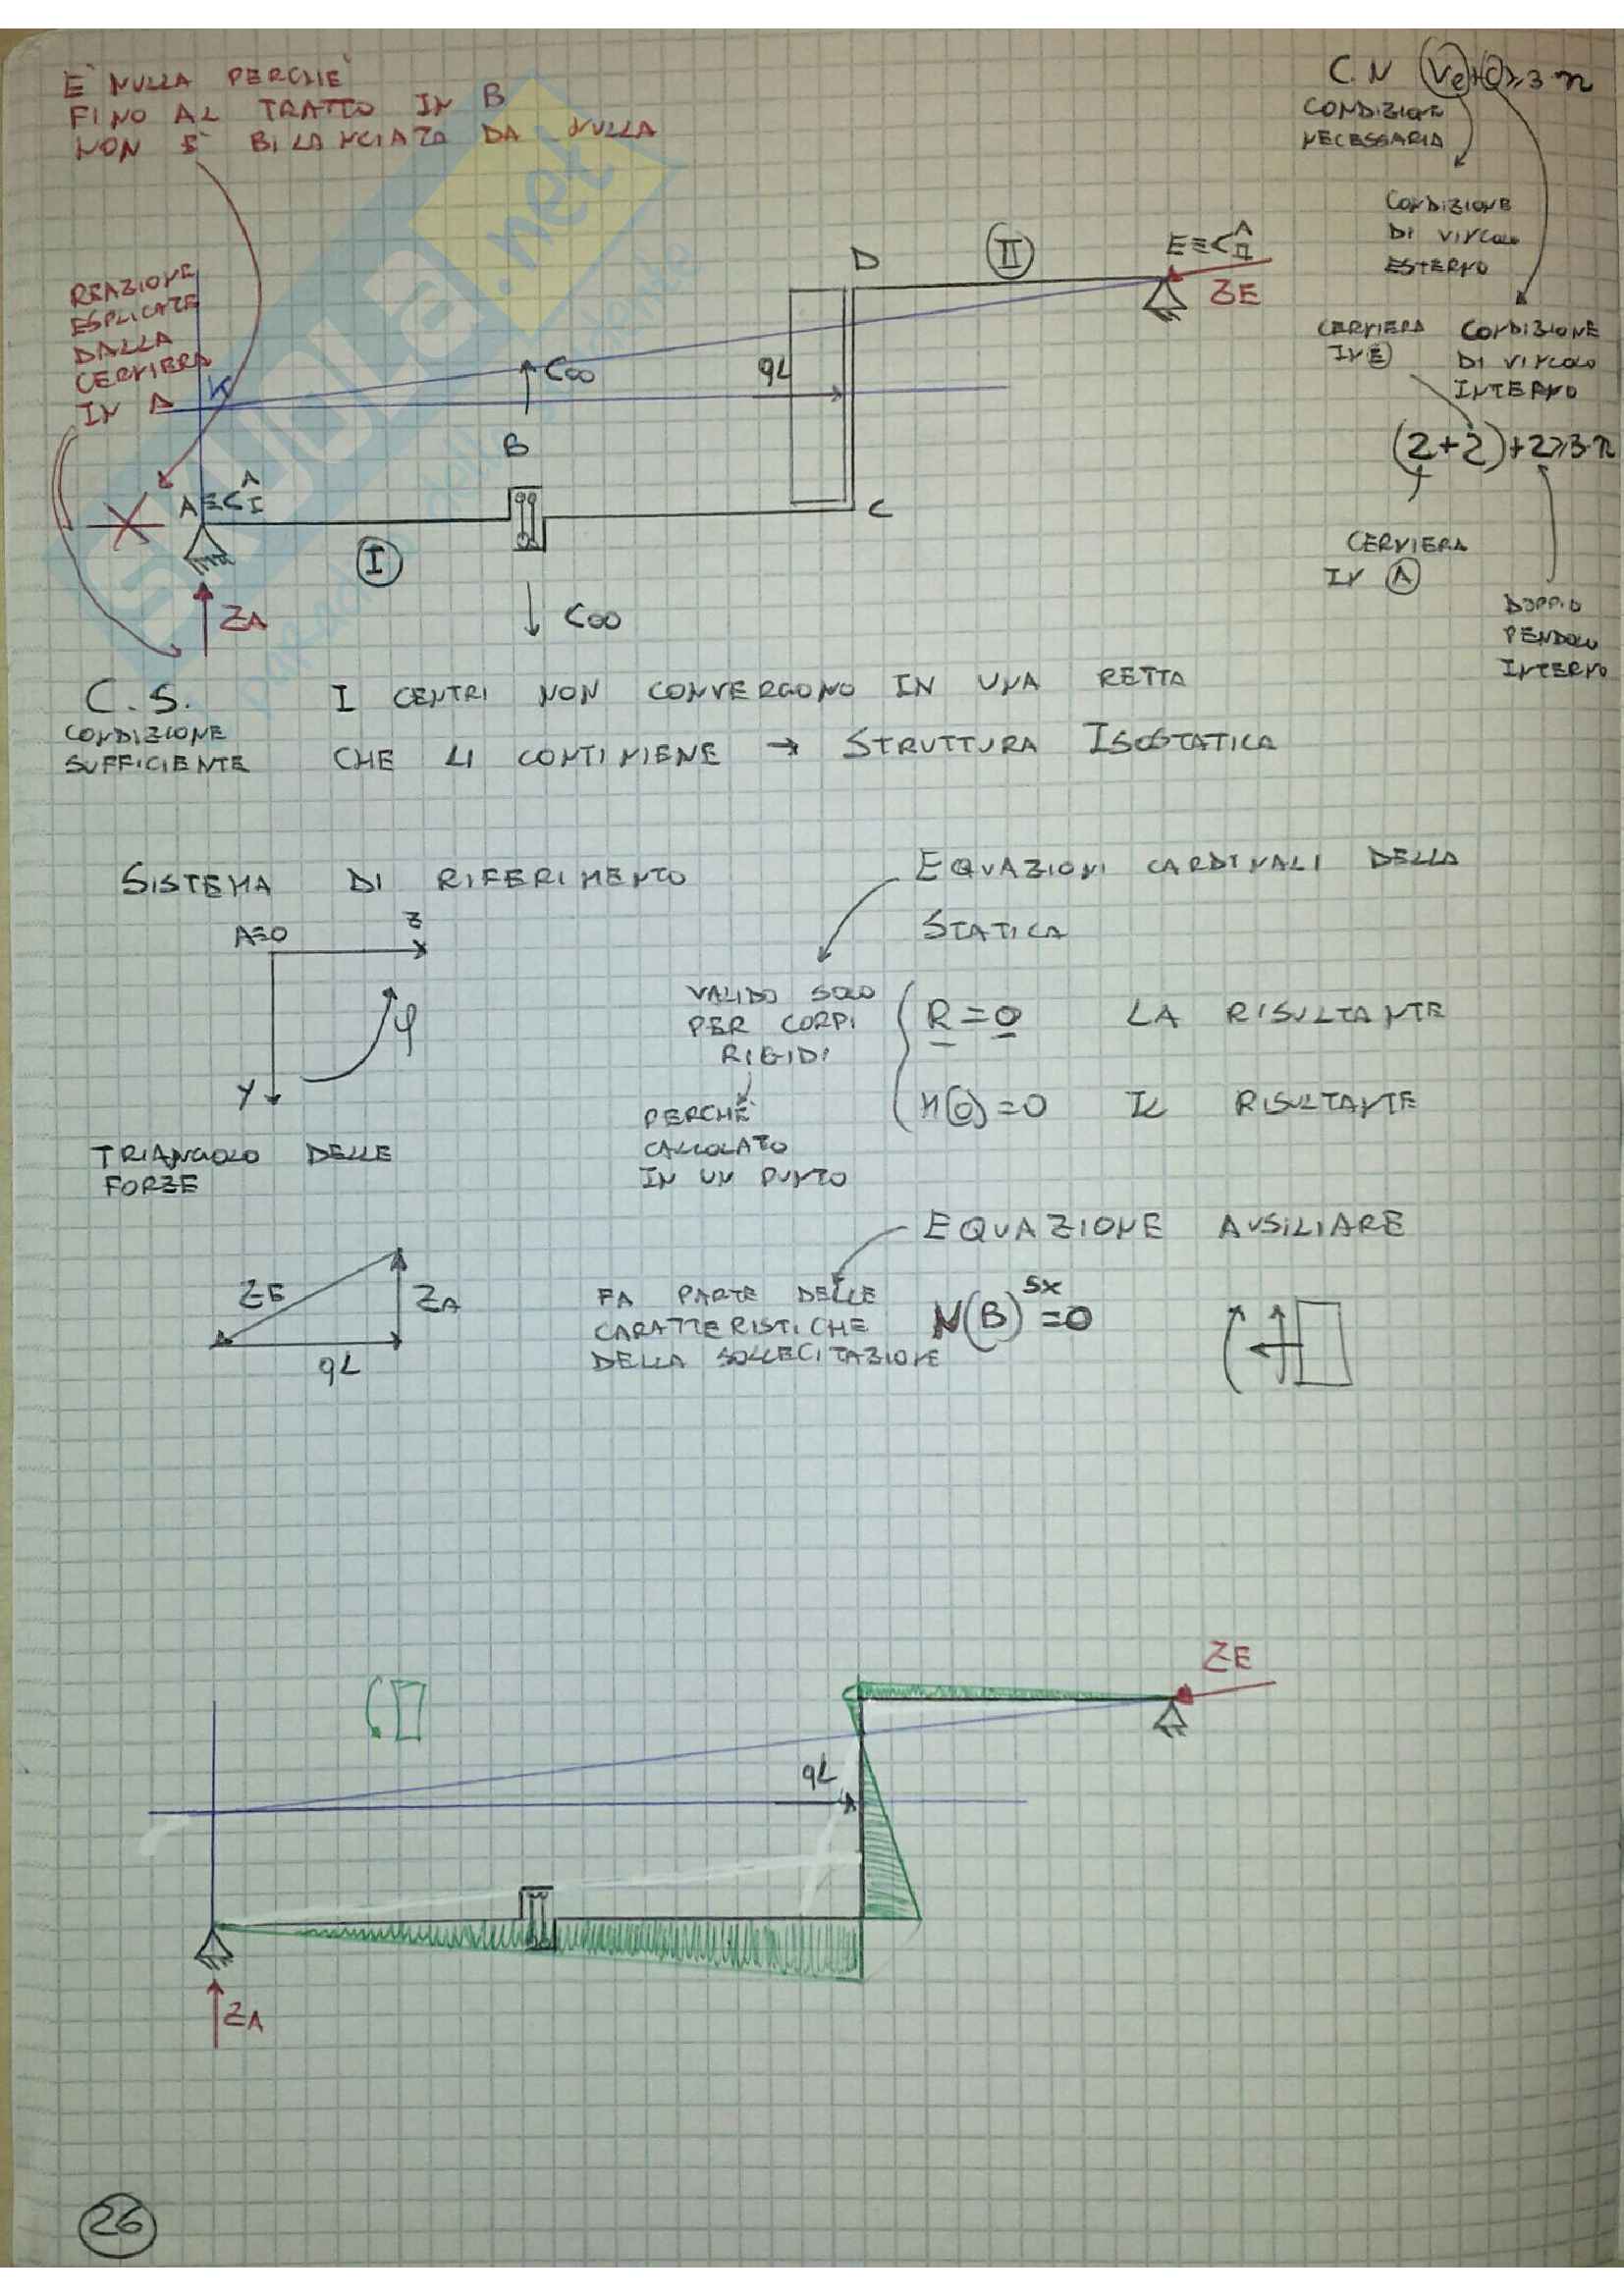 È NULLA PERCHÉ
FINO AL TRATTO IN B
NON È BILANCIATA DA NULLA
C.N Ve+ ≥3·n
CONDIZIONE
NECESSARIA
CONDIZIONE
DI VINCOLO
ESTERNO
CERNIERA
IN E
CONDIZIONE
DI VINCOLO
INTERNO
(2+2)+2≥3·n
CERNIERA
IN A
DOPPIO
PENDOLO
INTERNO
REAZIONE
ESPLICATE
DALLA
CERNIERA
IN A
K
D
II
E≡C^II
ZE
C∞
qL
B
A≡C^I
C
I
ZA
C∞
SKUOLA.net
C.S.
CONDIZIONE
SUFFICIENTE
I CENTRI NON CONVERGONO IN UNA RETTA
CHE LI CONTIENE → STRUTTURA ISOSTATICA
SISTEMA DI RIFERIMENTO
A≡O
Z
φ
Y
EQUAZIONI CARDINALI DELLA
STATICA
VALIDO SOLO
PER CORPI
RIGIDI
PERCHÉ
CALCOLATO
IN UN PUNTO
R=0 LA RISULTANTE
M(O)=0 IL RISULTANTE
TRIANGOLO DELLE
FORZE
ZE
ZA
qL
EQUAZIONE AUSILIARE
FA PARTE DELLE
CARATTERISTICHE
DELLA SOLLECITAZIONE
N(B)^SX=0
ZE
qL
ZA
26